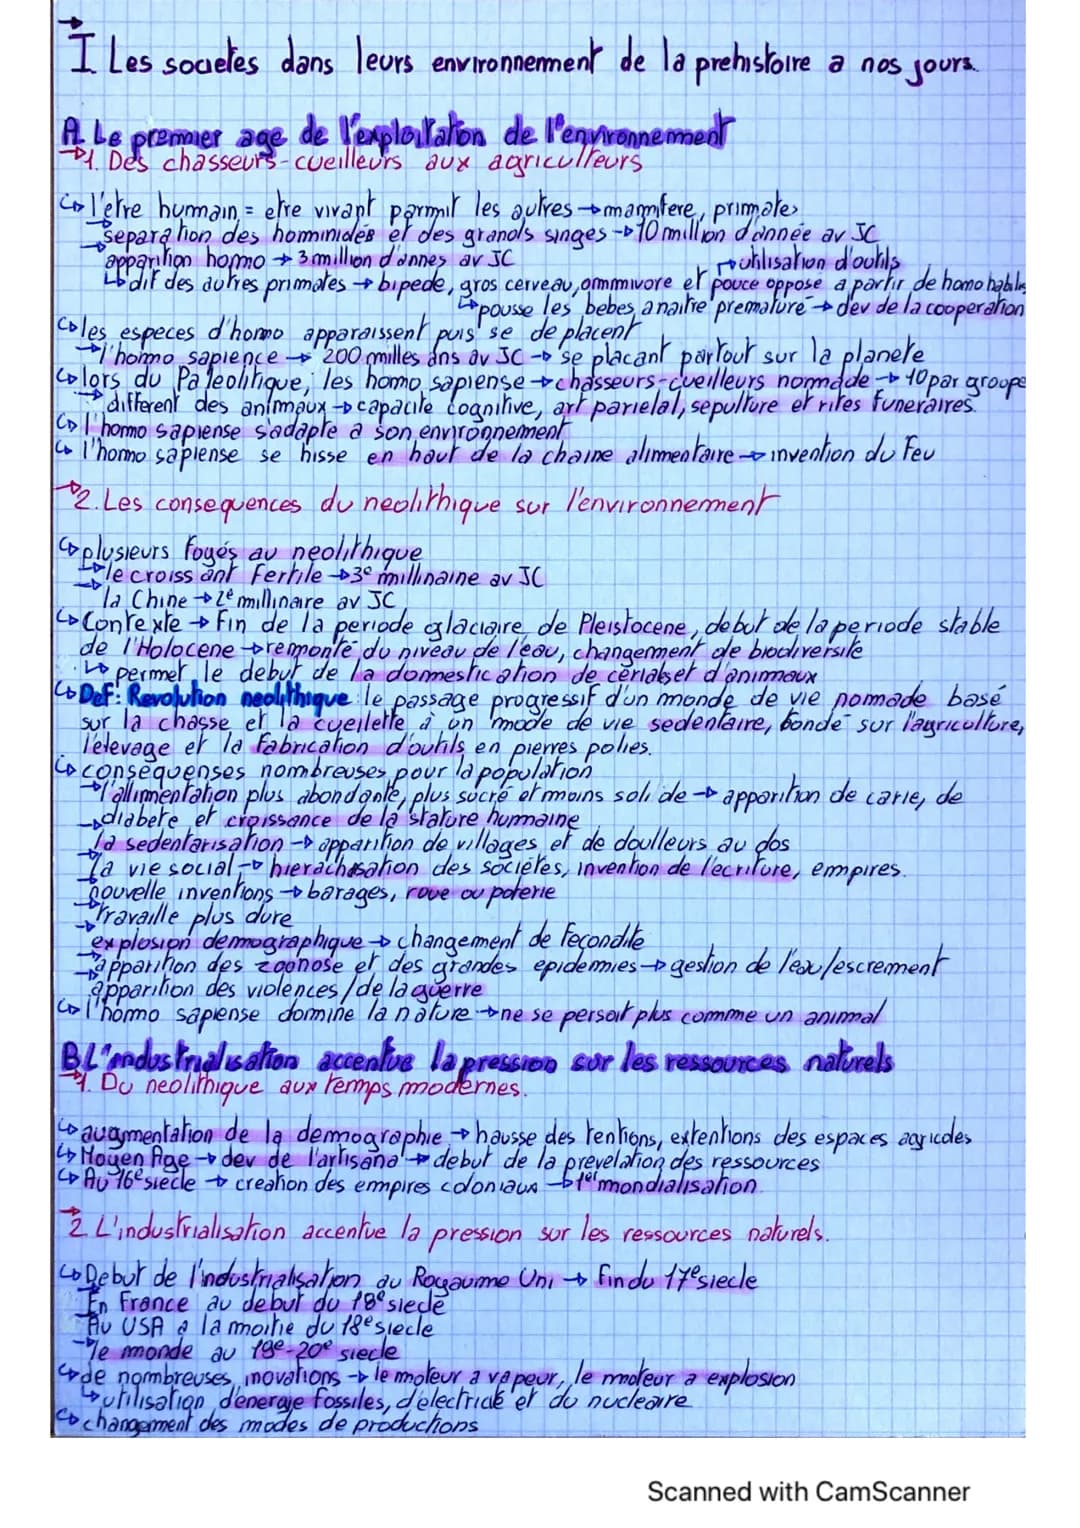 I Les societes dans leurs environnement de la prehistoire a nos jours.
A. Le premier age de l'exploitation de l'environnement
1. Des chasseurs-cueilleurs aux agriculteurs
l'etre humain = etre vivant parmit les autres → mammifere, primates
separation des hominidés et des grands singes → 10 million d'année av JC
apparition homo → 3 million d'annes av JC
utilisation d'outils
dif des autres primates → bipede, gros cerveau, ommnivore et pouce oppose a partir de homo habilis
pousse les bebes a naitre premature → dev de la cooperation
les especes d'homo apparaissent puis se de placent
l'homo sapience → 200 milles ans av JC → se placant partout sur la planete
lors du Paleolitique, les homo sapiense → chasseurs-cueilleurs nommade → 10 par groupe
different des animaux → capacite cognitive, art parietal, sepulture et rites funeraires.
l'homo sapiense s'adapte a son environnement
l'homo sapiense se hisse en haut de la chaine alimmentaire → invention du feu
2. Les consequences du neolithique sur l'environnement
plusieurs foyés au neolithique
le croissant fertile → 3e millinaine av JC
la Chine → 2e millinaire av JC
Contexte → fin de la periode glaciaire de Pleistocene, debut de la periode stable
de l'Holocene → remonté du niveau de l'eau, changement de biodiversité
permet le debut de la domestication de cerlaset d'animaux
Def: Revolution neolithique: le passage progressif d'un monde de vie nomade basé
sur la chasse et la cueilette à un mode de vie sedentaire, bondé sur l'agriculture,
l'elevage et la fabrication d'outils en pierres polies.
consequenses nombreuses pour la population
l'allimentation plus abondante, plus sucré et moins solide → apparition de carie, de
diabete et croissance de la stature humaine
la sedentarisation → apparition de villages et de doulleurs au dos
la vie social → hierachisation des societes, invention de l'ecriture, empires.
nouvelle inventions → barages, roue ou poterie
travaille plus dure
explosion demographique → changement de fecondite
apparition des zoonose et des grandes epidemies → gestion de l'eau/escrement
apparition des violences/de la guerre
l'homo sapiense domine la nature → ne se persoit plus comme un animal
B L'industrialisation accentue la pression sur les ressources naturels
1. Du neolithique aux temps modernes.
augmentation de la demographie → hausse des tentions, extentions des espaces agricoles
Moyen Age → dev de l'artisanat → debut de la prevelation des ressources
Au 16e siecle → creation des empires coloniaux → 1er mondialisation.
2. L'industrialisation accentue la pression sur les ressources naturels.
Debut de l'industrialisation au Royaume Uni → fin du 17e siecle
En France au debut du 18e siecle
Au USA a la moitie du 18e siecle
le monde au 19e-20e siecle
de nombreuses inovations → le moteur a vapeur, le moteur a explosion
utilisation d'energie fossiles, d'electricité et du nucleaire
changement des modes de productions
Scanned with CamScanner